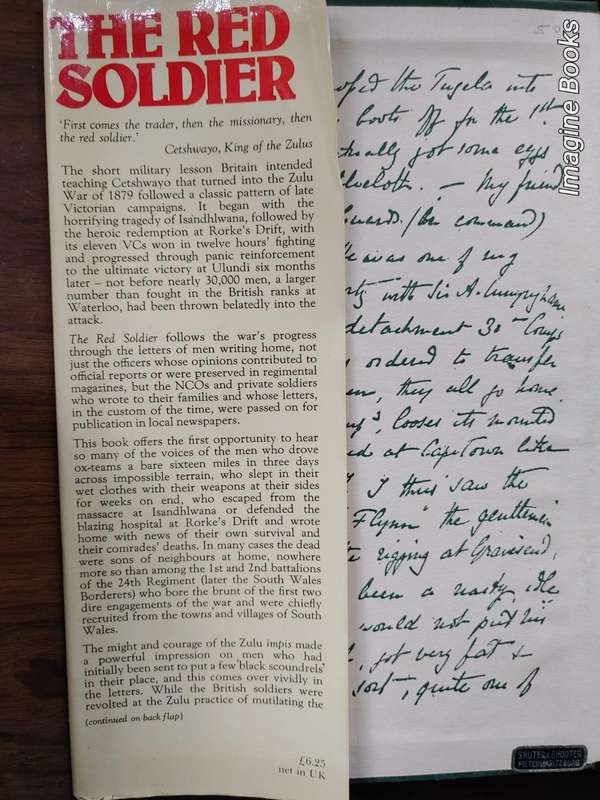 THE RED
SOLDIER
'First comes the trader, then the missionary, then
the red soldier.'
Cetshwayo, King of the Zulus
The short military lesson Britain intended
teaching Cetshwayo that turned into the Zulu
War of 1879 followed a classic pattern of late
Victorian campaigns. It began with the
horrifying tragedy of Isandhlwana, followed by
the heroic redemption at Rorke's Drift, with
its eleven VCs won in twelve hours' fighting
and progressed through panic reinforcement
to the ultimate victory at Ulundi six months
later – not before nearly 30,000 men, a larger
number than fought in the British ranks at
Waterloo, had been thrown belatedly into the
attack.
The Red Soldier follows the war's progress
through the letters of men writing home, not
just the officers whose opinions contributed to
official reports or were preserved in regimental
magazines, but the NCOs and private soldiers
who wrote to their families and whose letters,
in the custom of the time, were passed on for
publication in local newspapers.
This book offers the first opportunity to hear
so many of the voices of the men who drove
ox-teams a bare sixteen miles in three days
across impossible terrain, who slept in their
wet clothes with their weapons at their sides
for weeks on end, who escaped from the
massacre at Isandhlwana or defended the
blazing hospital at Rorke's Drift and wrote
home with news of their own survival and
their comrades' deaths. In many cases the dead
were sons of neighbours at home, nowhere
more so than among the 1st and 2nd battalions
of the 24th Regiment (later the South Wales
Borderers) who bore the brunt of the first two
dire engagements of the war and were chiefly
recruited from the towns and villages of South
Wales.
The might and courage of the Zulu impis made
a powerful impression on men who had
initially been sent to put a few 'black scoundrels'
in their place, and this comes over vividly in
the letters. While the British soldiers were
revolted at the Zulu practice of mutilating the
(continued on back flap)
£6.25
net in UK
the Tugela into
boots off for the 1st
got some eggs
– My friend
Guards (in command)
as one of my
with Sir A. Cunynghame
detachment 30th Comp
ordered to transfer
they all go home
looses its mounted
at Capetown like
I thus saw the
"Flynn" the gentleman
rigging at Gravesend,
been a nasty idle
would not put his
got very fat &
sort, quite one of
Imagine Books
SHUTER & SHOOTER
PIETERMARITZBURG